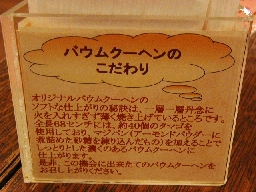 バウムクーヘンの
こだわり
オリジナルバウムクーヘンの
ソフトな仕上がりの秘訣は、一層一層丹念に
火を入れすぎず薄く焼き上げているところです。
全長68センチには、約40個のタマゴを
使用しており、マジパン(アーモンドパウダーに
煮詰めた砂糖を練り込んだもの)を加えることで
しっとりとした濃くのあるバウムクーヘンに
仕上がります。
是非、この機会に出来たてのバウムクーヘンを
お召し上がりください。